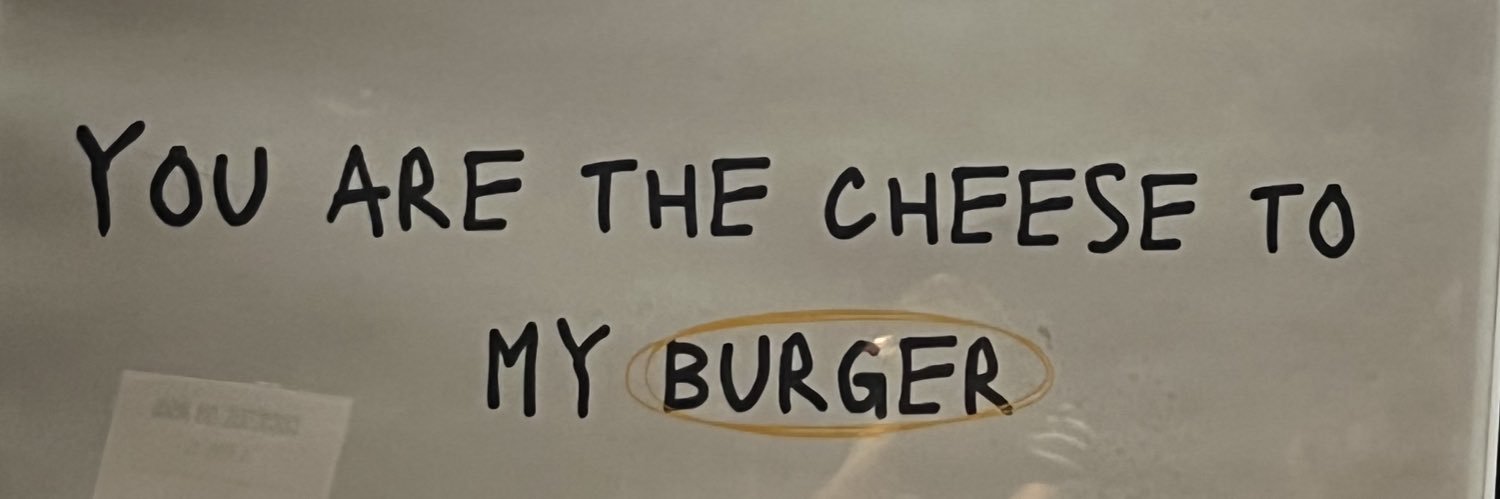 YOU ARE THE CHEESE TO
MY BURGER